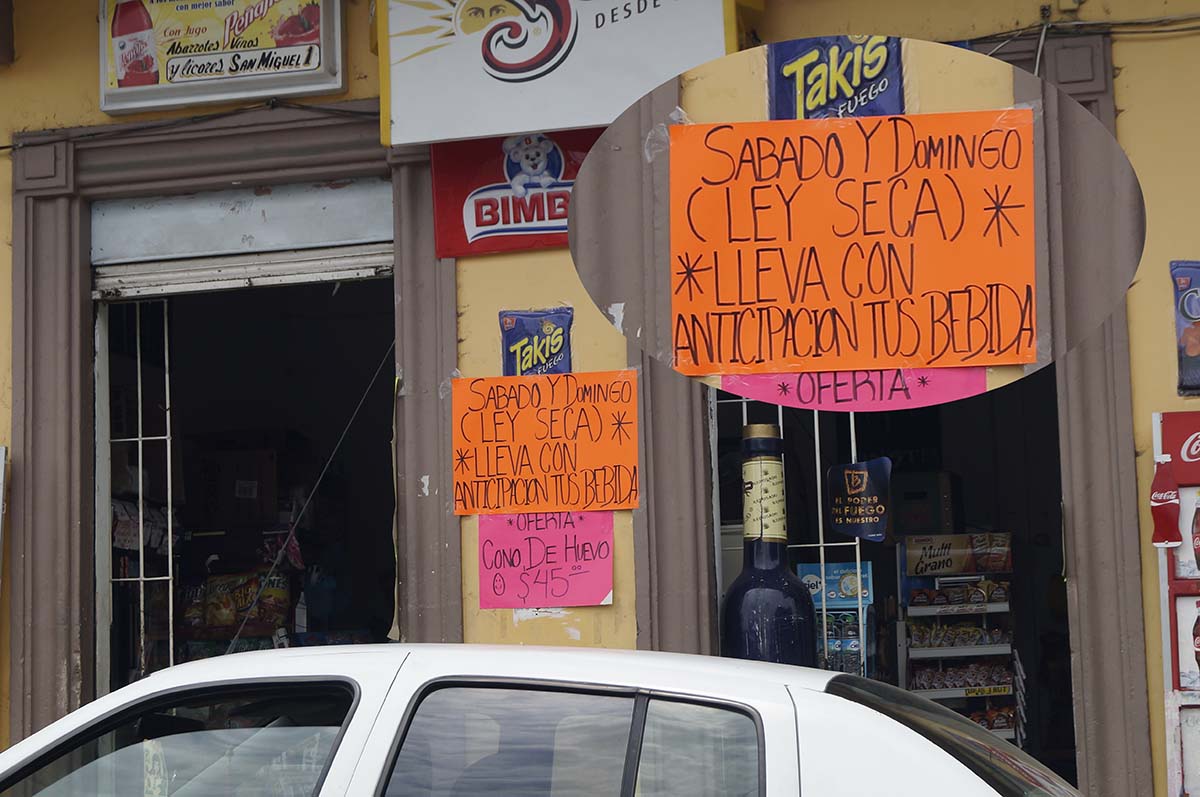 con mejor sabor
Con Jugo
Abarrotes Vinos
y licores SAN MIGUEL 1
DESDE
BIMB
Takis
FUEGO
SABADO Y DOMINGO
(LEY SECA) *
* LLEVA CON
ANTICIPACION TUS BEBIDA
* OFERTA *
Takis
FUEGO
SABADO Y DOMINGO
(LEY SECA) *
* LLEVA CON
ANTICIPACION TUS BEBIDA
* OFERTA *
CONO DE HUEVO
$45.00
EL PODER
DEL FUEGO
ES NUESTRO
Multi
Grano
Coca-Cola